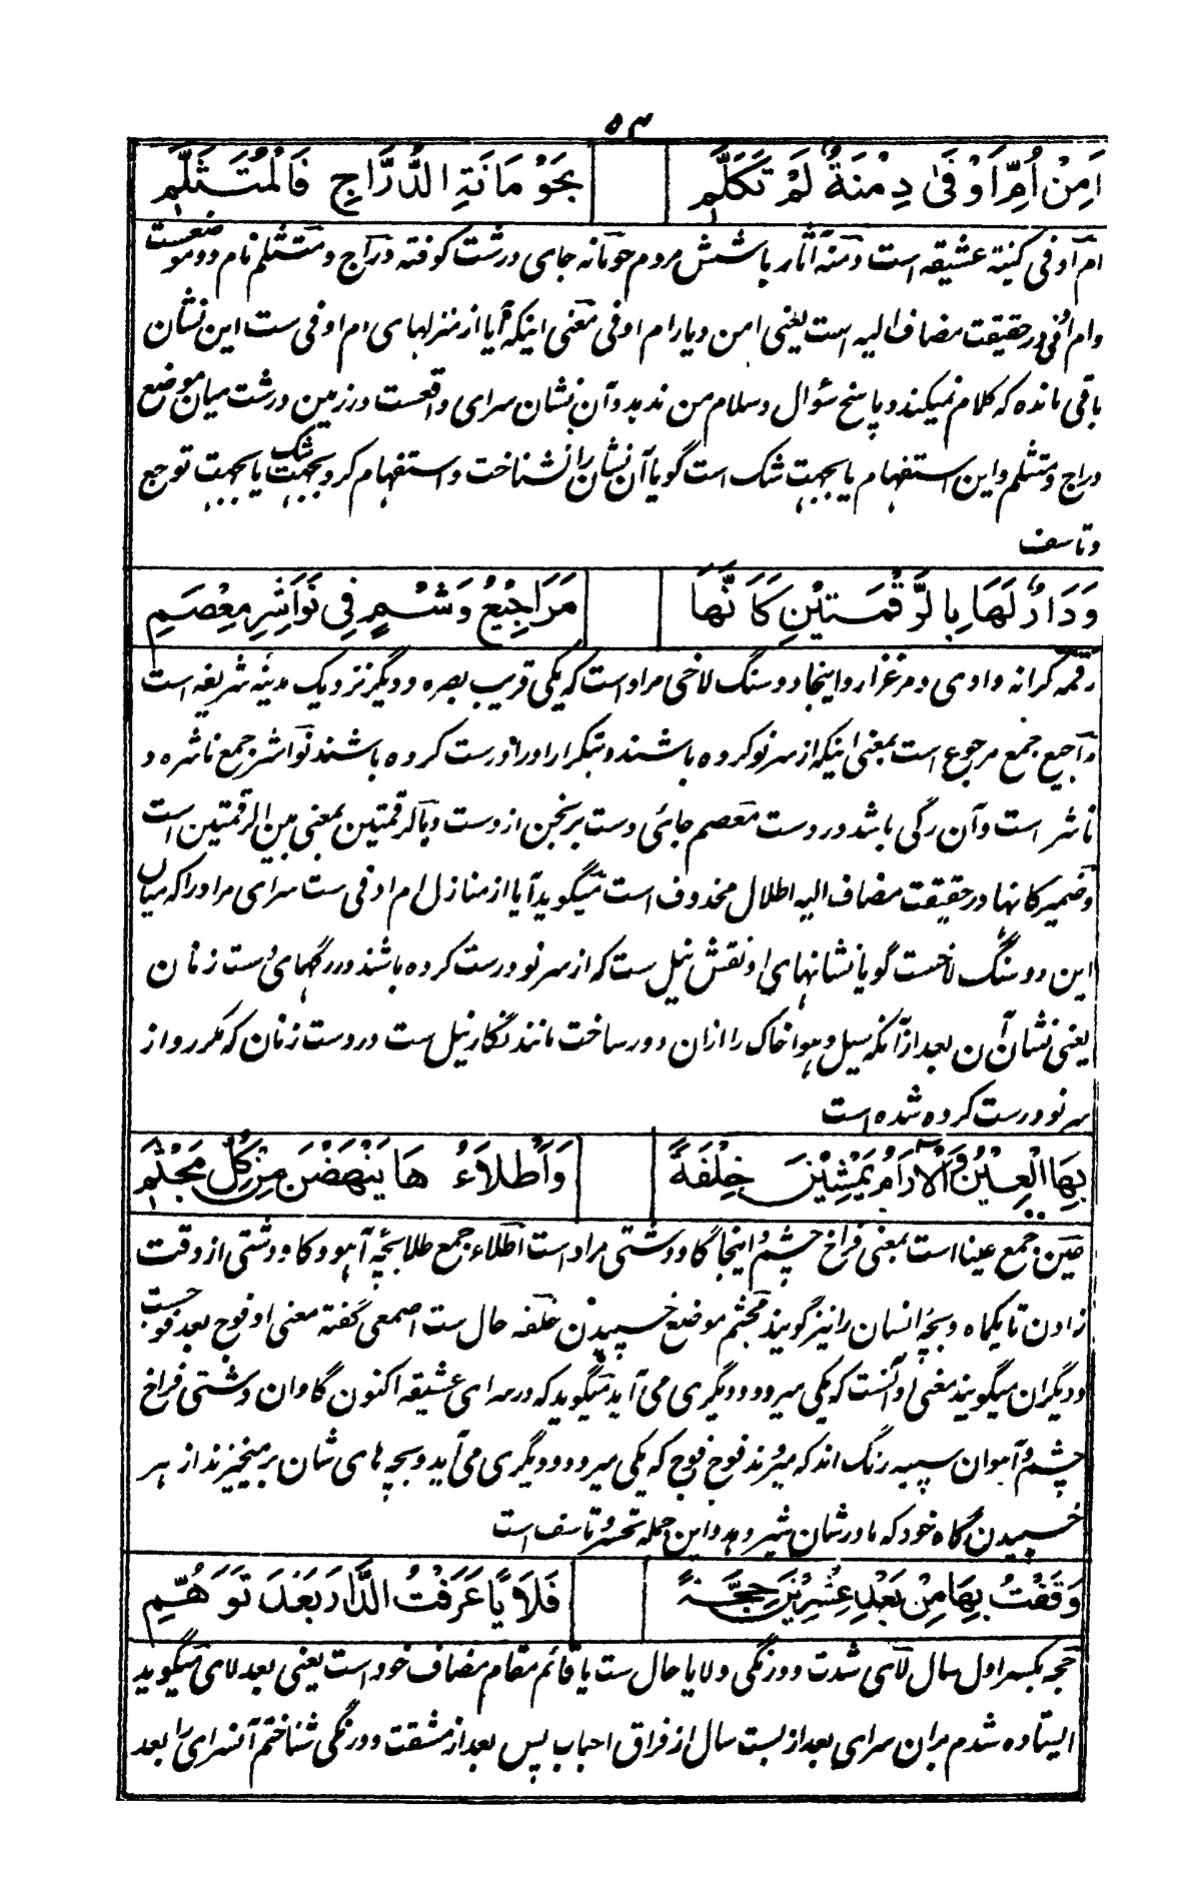 ۵۳
اَمِنْ اُمِّ اَوْفیٰ دِمْنَةٌ لَمْ تَكَلَّمِ بِحَوْمَانَةِ الدَّرَّاجِ فَالْمُتَثَلَّمِ
ام اوفی کنیتهٔ عشیقه است دمنه آثار باشش مردم حومانه جای درشت کوفته دراج و متثلم نام دو موضعست
وام اوفی در حقیقت مضاف الیه است یعنی امن دیار ام اوفی معنی اینکه آیا از منزلهای ام اوفی ست این نشان
باقی مانده که کلام نمیکند و پاسخ سؤال و سلام من ندهد و آن نشان سرای واقعست در زمین درشت میان موضع
دراج و متثلم و این استفهام یا بجهت شک است گویا آن نشان را نشناخت و استفهام کرد بجهت شک یا بجهت توجع
و تاسف
وَدَارٌ لَهَا بِالرَّقْمَتَيْنِ كَاَنَّهَا مَرَاجِيْعُ وَشْمٍ فِي نَوَاشِرِ مِعْصَمِ
رقمه کرانه وادی و مرغزار و اینجا دو سنگ لاخی مراد است که یکی قریب بصره و دیگر نزدیک مدینه شریفه است
مراجیع جمع مرجوع است بمعنی اینکه از سر نو کرده باشند و بتکرار او را درست کرده باشند نواشر جمع ناشره و
ناشر است و آن رگی باشد در دست معصم جائی دست برنجن از دست و بالرقمتین بمعنی بین الرقمتین است
و ضمیر کانها در حقیقت مضاف الیه اطلال محذوف است میگوید آیا از منازل ام اوفی ست سرای مر او را که میان
این دو سنگ لاخست گویا نشانهای او نقش نیل ست که از سر نو درست کرده باشند در رگهای دست زنان
یعنی نشان آن بعد از آنکه سیل و هوا خاک را ازان دور ساخت مانند نگار نیل ست در دست زنان که مکرر و از
سر نو درست کرده شده است
بِهَا الْعِيْنُ وَالْآرَامُ يَمْشِيْنَ خِلْفَةً وَاَطْلَاءُهَا يَنْهَضْنَ مِنْ كُلِّ مَجْثَمِ
عین جمع عینا است بمعنی فراخ چشم و اینجا گاو دشتی مراد است اطلاء جمع طلا بچهٔ آهو و گاو دشتی از وقت
زادن تا یکماه و بچهٔ انسان را نیز گویند مجثم موضع خسپیدن خلفه حال ست اصمعی گفته معنی او فوج بعد فوجست
و دیگران میگویند معنی او آنست که یکی میرود و دیگری می آید میگوید که در سرای عشیقه اکنون گاوان دشتی فراخ
چشم و آهوان سپید رنگ اند که میروند فوج فوج که یکی میرود و دیگری می آید و بچه های شان بر میخیزند از هر
خسپیدن گاه خود که مادر شان شیر دهد و این جمله تحسر و تاسف است
وَقَفْتُ بِهَا مِنْ بَعْدِ عِشْرِيْنَ حِجَّةً فَلَاْيًا عَرَفْتُ الدَّارَ بَعْدَ تَوَهُّمِ
حجه بکسر اول سال لای شدت و درنگی و لایا حال ست یا قائم مقام مضاف خود است یعنی بعد لای میگوید
ایستاده شدم بران سرای بعد از بست سال از فراق احباب پس بعد از مشقت و درنگی شناختم آنسرای را بعد